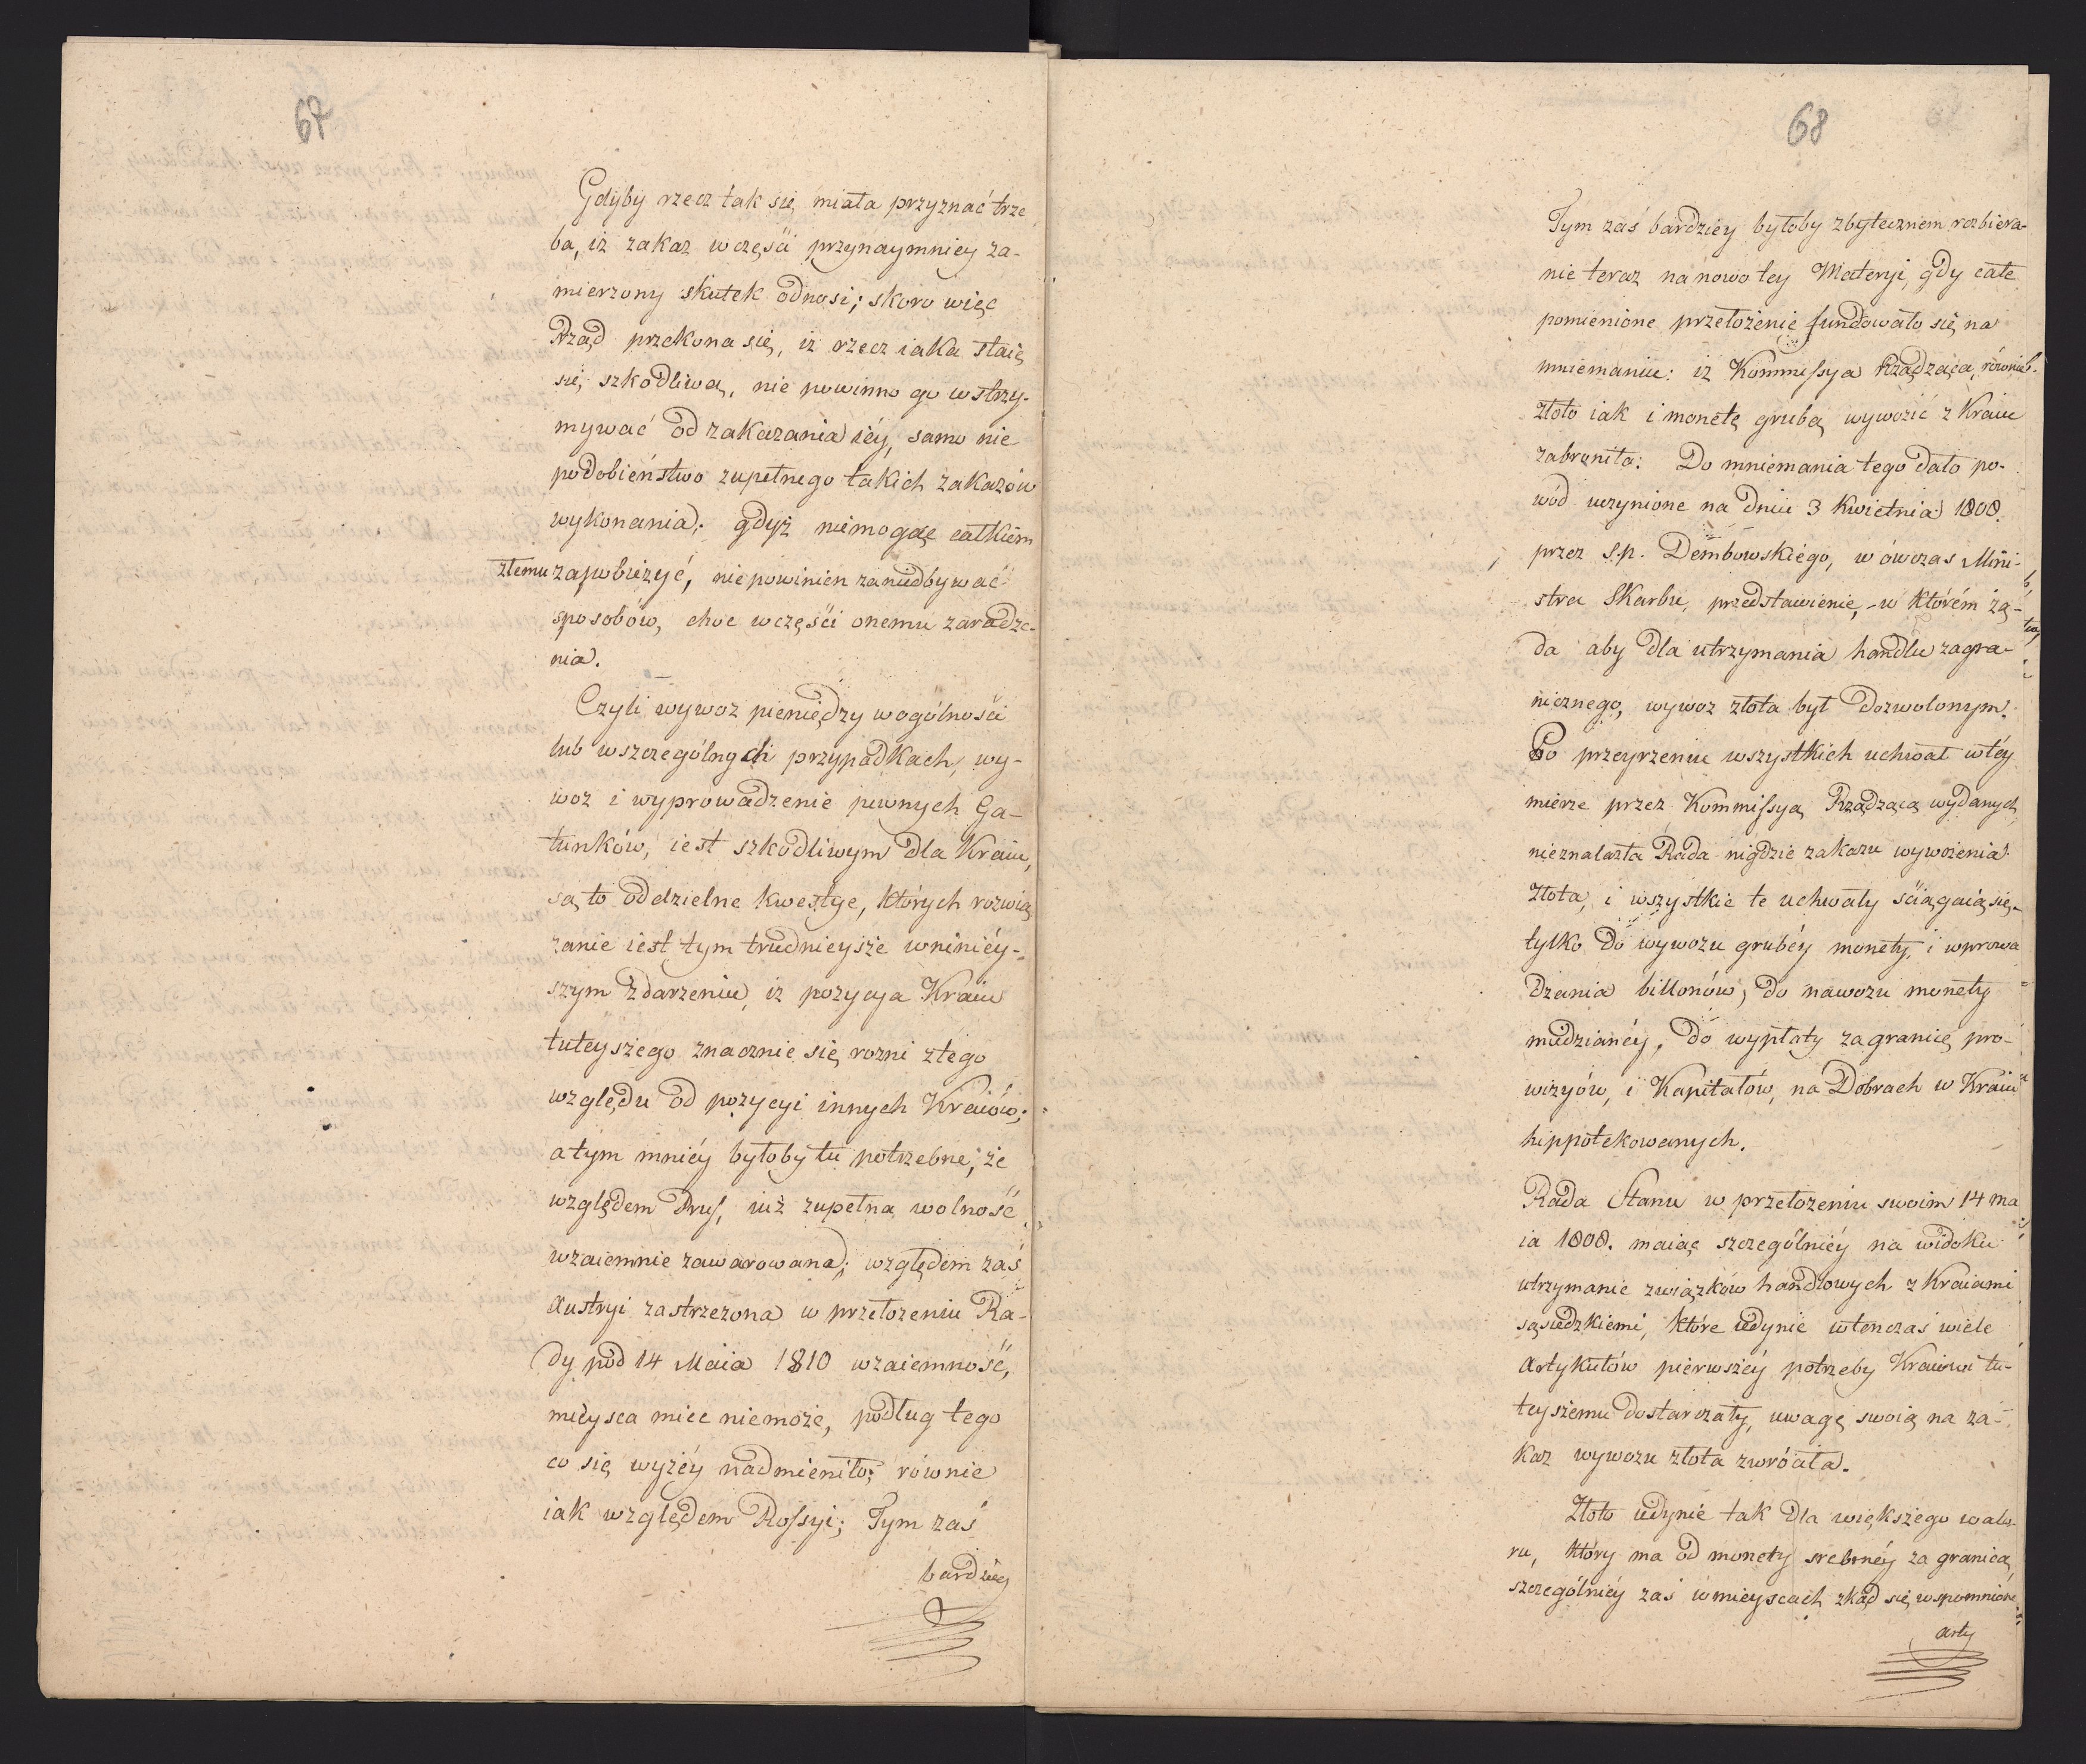 67
Gdyby rzecz tak się miała przyznać trze
ba, iż zakaz w częsci przynaymniey za-
mierzony skutek odnosi; skoro więc
Rząd przekona się, iż rzecz iaka staie
się szkodliwą, nie powinno go wstrzy-
mywać od zakazania iéy, samo nie
podobieństwo zupełnego takich zakazów
wykonania; gdyż niemogąc całkiem
złemu zapobieżyć, nie powinien zaniedbywać
sposobów, choc w częsci onemu zaradze-
nia.
Czyli wywoz pieniędzy w ogólnosci
lub w szczególnych przypadkach, wy-
woz i wyprowadzenie pewnych Ga-
tunków, iest szkodliwym dla Kraiu,
są to oddzielne kwestye, których rozwią
zanie iest tym trudnieysze w niniéy-
szym zdarzeniu, iż pozycya Kraiu
tuteyszego znacznie się rozni z tego
względu od pozycyi innych Kraiów;
a tym mniéy byłoby tu potrzebne, że
względem Prus, iuż zupełna wolność
wzaiemnie zawarowana; względem zaś
Austryi zastrzeżona w przełożeniu Ra-
dy pod 14 Maia 1810 wzaiemność,
mieysca miec niemoże, podług tego
co się wyżéy nadmieniło; równie
iak względem Rossyi; Tym zaś
bardziey
68
Tym zaś bardziéy byłoby zbytecznem rozbiera-
nie teraz na nowo tey Materyi, gdy całe
pomienione przełożenie fundowało się na
mniemaniu: iż Kommissya Rządząca, równie
złoto iak i monetę grubą wywozić z Kraiu
zabroniła. Do mniemania tego dało po-
wód uczynione na dniu 3 Kwietnia 1808.
przez s.p. Dembowskiégo, w ówczas Mini-
stra Skarbu, przedstawienie, w którém żą-
da aby dla utrzymania handlu zagra-
nicznego, wywoz złota był dozwolonym.
Po przeyrzeniu wszystkich uchwał w téy
mierze przez Kommissyą Rządzącą wydanych,
nieznalazła Rada nigdzie zakazu wywożenia
złota, i wszystkie te uchwały sciągaią się
tylko do wywozu grubéy monety, i wprowa
dzania billonów, do nawozu monety
miedzianéy, do wypłaty zagranicę pro-
wizyów, i Kapitałów, na Dobrach w Kraiu
hippotekowanych.
Rada Stanu w przełożeniu swoim 14 ma
ia 1808. maiąc szczególniéy na widoku
utrzymanie związków handlowych z Kraiami
sąsiedzkiemi, które iedynie wtenczas wiele
Artykułów pierwszéy potrzeby Kraiowi tu-
teyszemu dostarczały, uwagę swoią na za-
kaz wywozu złota zwróciła.
Złoto iedynie tak dla większego walo-
ru, który ma od monety srebrnéy za granicą,
szczególniéy zaś w mieyscach zkąd się wspomnione
arty